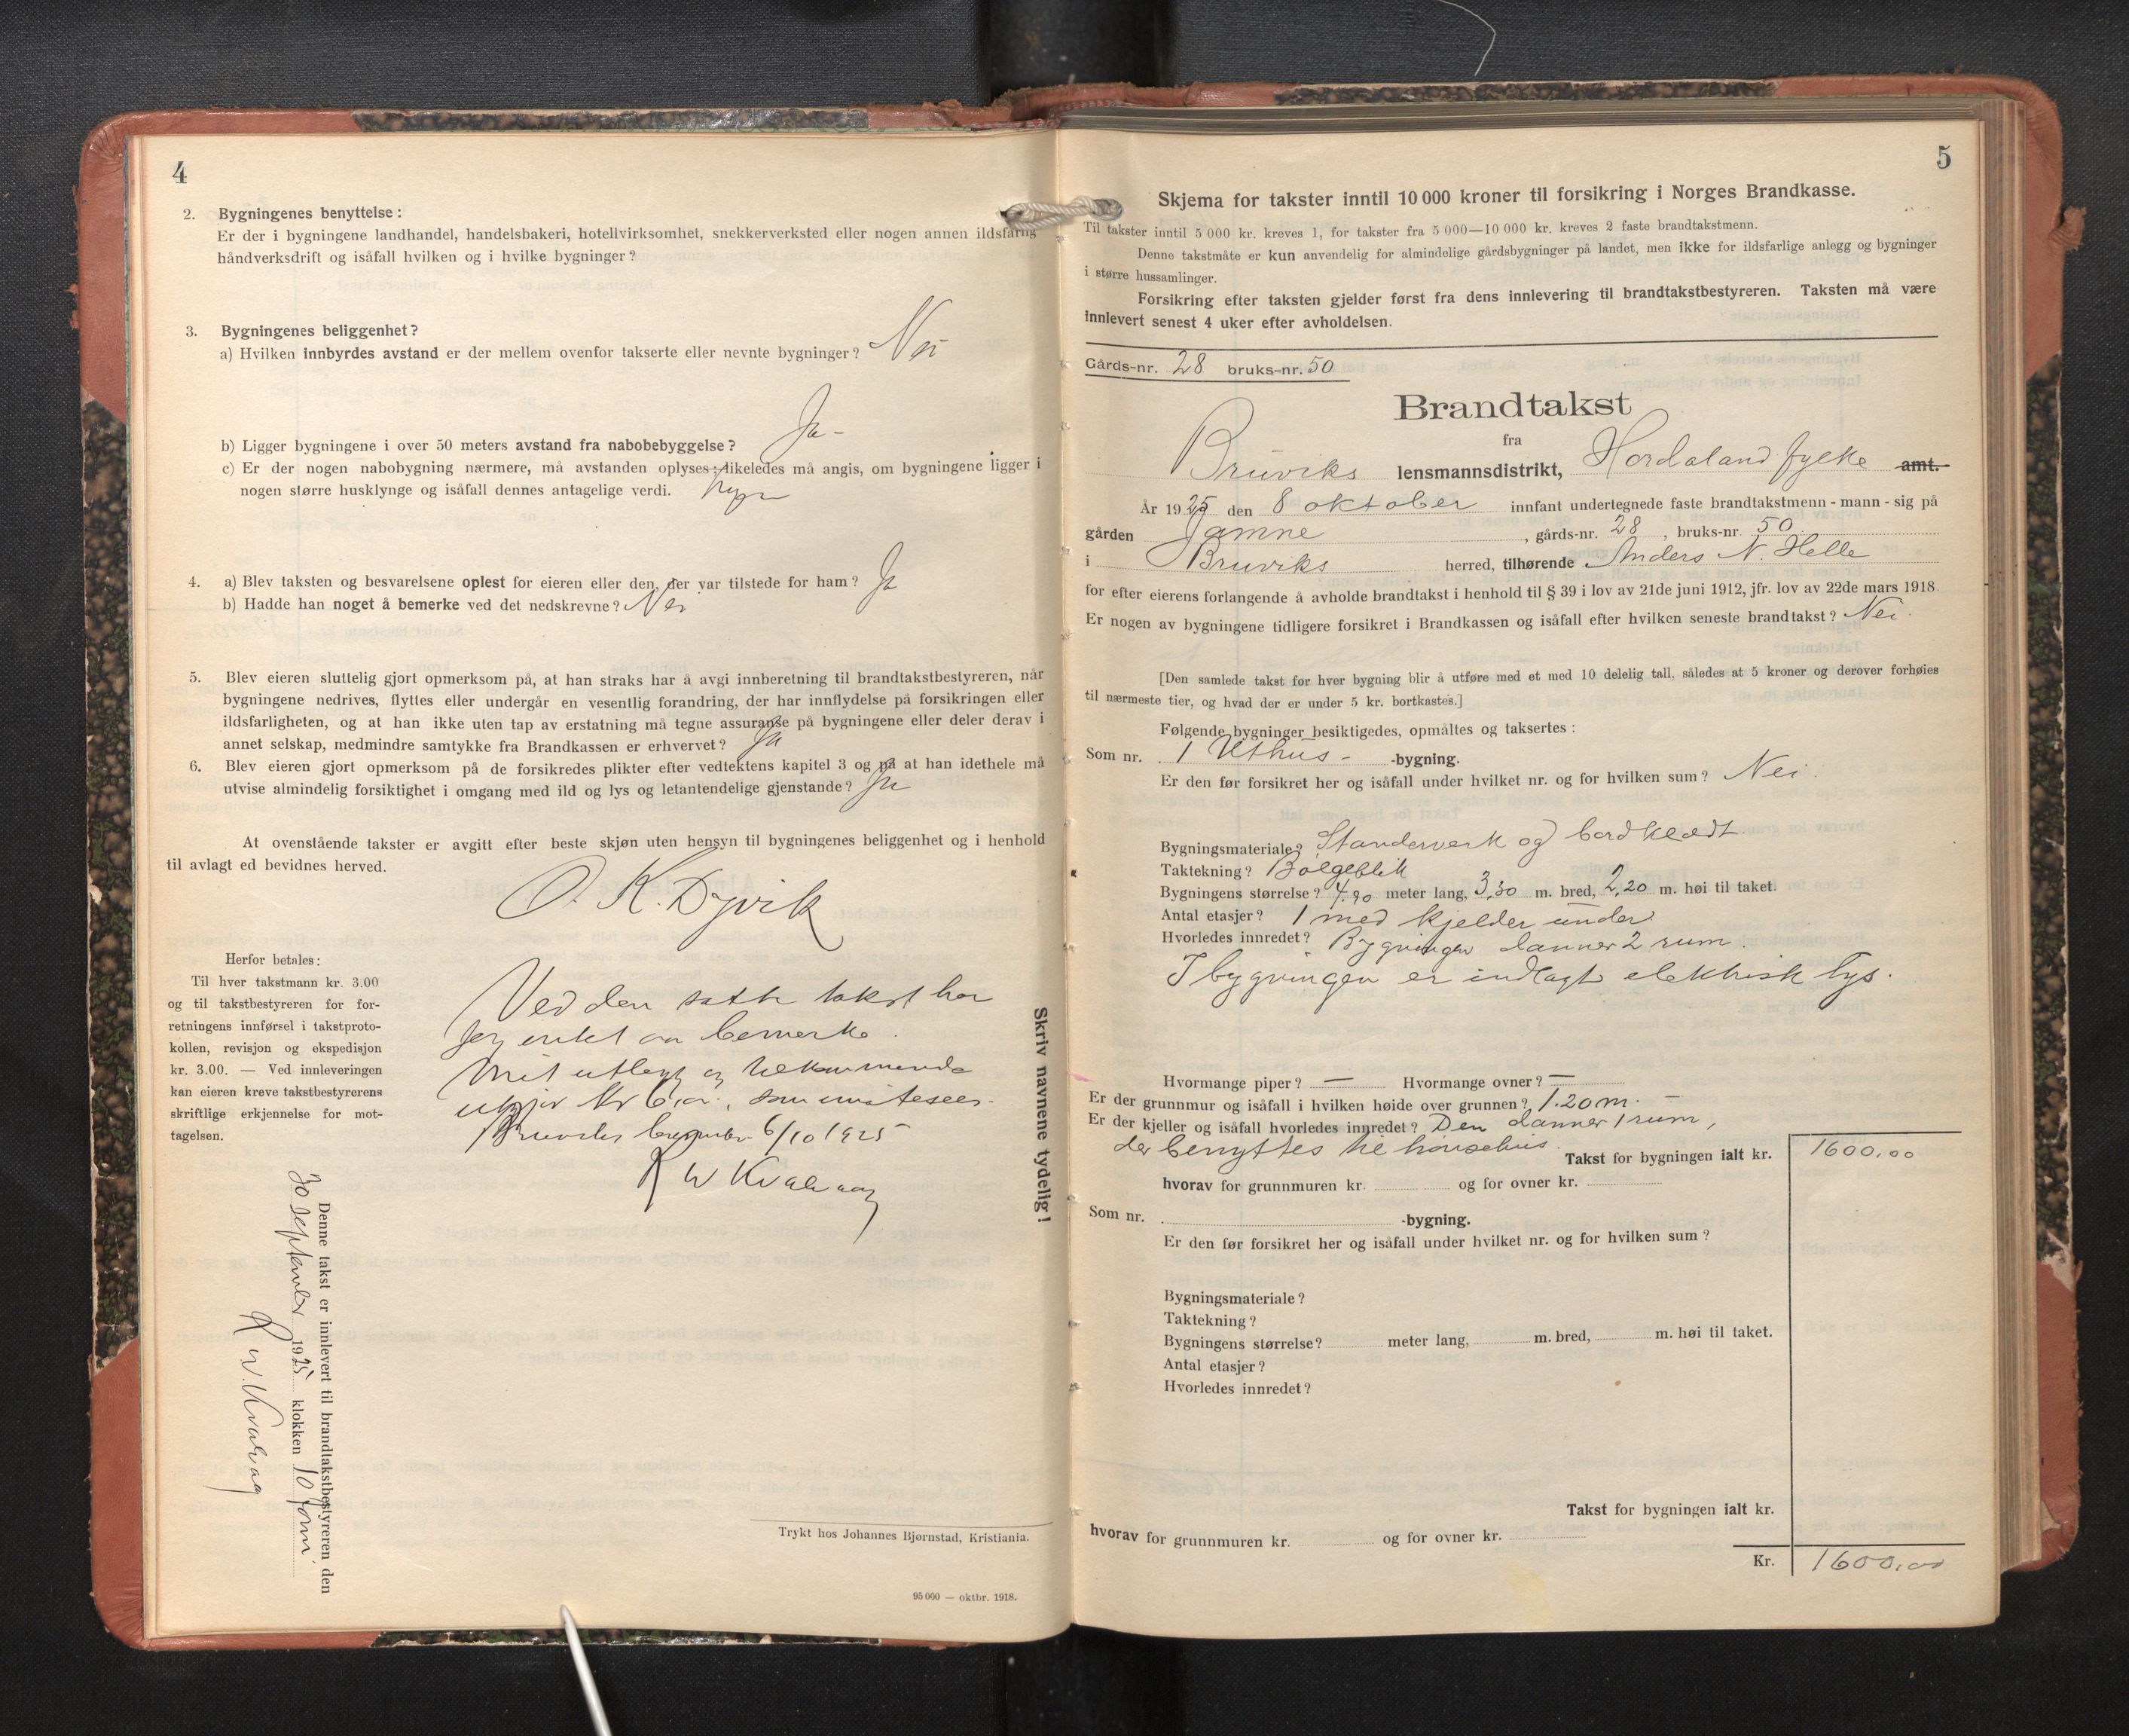 4
2. Bygningenes benyttelse:
Er der i bygningene landhandel, handelsbakeri, hotellvirksomhet, snekkerverksted eller nogen annen ildsfarlig
håndverksdrift og isåfall hvilken og i hvilke bygninger?
3. Bygningenes beliggenhet?
a) Hvilken innbyrdes avstand er der mellem ovenfor takserte eller nevnte bygninger? Nei
b) Ligger bygningene i over 50 meters avstand fra nabobebyggelse? Ja -
c) Er der nogen nabobygning nærmere, må avstanden oplyses; likeledes må angis, om bygningene ligger i
nogen større husklynge og isåfall dennes antagelige verdi.
4. a) Blev taksten og besvarelsene oplest for eieren eller den, der var tilstede for ham? Ja
b) Hadde han noget å bemerke ved det nedskrevne? Nei
5. Blev eieren sluttelig gjort opmerksom på, at han straks har å avgi innberetning til brandtakstbestyreren, når
bygningene nedrives, flyttes eller undergår en vesentlig forandring, der har innflydelse på forsikringen eller
ildsfarligheten, og at han ikke uten tap av erstatning må tegne assuranse på bygningene eller deler derav i
annet selskap, medmindre samtykke fra Brandkassen er erhvervet? Ja
6. Blev eieren gjort opmerksom på de forsikredes plikter efter vedtektens kapitel 3 og på at han idethele må
utvise almindelig forsiktighet i omgang med ild og lys og letantendelige gjenstande? Ja
At ovenstående takster er avgitt efter beste skjøn uten hensyn til bygningenes beliggenhet og i henhold
til avlagt ed bevidnes herved.
O. K. Dyvik
Herfor betales:
Til hver takstmann kr. 3.00
og til takstbestyreren for for-
retningens innførsel i takstproto-
kollen, revisjon og ekspedisjon
kr. 3.00. — Ved innleveringen
kan eieren kreve takstbestyrerens
skriftlige erkjennelse for mot-
tagelsen.
Ved den satte takst har
jeg intet aa bemerke.
Mit utlegg og tilkommende
utgjør Kr 6,00, som
6/10 1925
R W Kvalvaag
Skriv navnene tydelig!
Denne takst er innlevert til brandtakstbestyreren den
30 september 1925 klokken 10 form
R W. Kvalvaag
Trykt hos Johannes Bjørnstad, Kristiania.
95 000 — oktbr. 1918.
5
Skjema for takster inntil 10 000 kroner til forsikring i Norges Brandkasse.
Til takster inntil 5 000 kr. kreves 1, for takster fra 5 000—10 000 kr. kreves 2 faste brandtakstmenn.
Denne takstmåte er kun anvendelig for almindelige gårdsbygninger på landet, men ikke for ildsfarlige anlegg og bygninger
i større hussamlinger.
Forsikring efter taksten gjelder først fra dens innlevering til brandtakstbestyreren. Taksten må være
innlevert senest 4 uker efter avholdelsen.
Gårds-nr. 28 bruks-nr. 50
Brandtakst
fra
Bruviks lensmannsdistrikt, Hordaland fylke amt.
År 1925 den 8 oktober innfant undertegnede faste brandtakstmenn - mann - sig på
gården Jamne, gårds-nr. 28, bruks-nr. 50
i Bruviks herred, tilhørende Anders N. Helle
for efter eierens forlangende å avholde brandtakst i henhold til § 39 i lov av 21de juni 1912, jfr. lov av 22de mars 1918
Er nogen av bygningene tidligere forsikret i Brandkassen og isåfall efter hvilken seneste brandtakst? Nei.
[Den samlede takst for hver bygning blir å utføre med et med 10 delelig tall, således at 5 kroner og derover forhøies
til nærmeste tier, og hvad der er under 5 kr. bortkastes.]
Følgende bygninger besiktigedes, opmåltes og taksertes:
Som nr. 1 Uthus - -bygning.
Er den før forsikret her og isåfall under hvilket nr. og for hvilken sum? Nei.
Bygningsmateriale? Standerverk og bordklædt.
Taktekning? Bølgeblik
Bygningens størrelse? 4,90 meter lang, 3,30 m. bred, 2,20 m. høi til taket.
Antal etasjer? 1 med kjelder under
Hvorledes innredet? Bygningen danner 2 rum.
I bygningen er indlagt elektrisk lys.
Hvormange piper? — Hvormange ovner? —
Er der grunnmur og isåfall i hvilken høide over grunnen? 1.20 m. —
Er der kjeller og isåfall hvorledes innredet? Den danner 1 rum,
der benyttes til hønsehus.
Takst for bygningen ialt kr. 1600,00
hvorav for grunnmuren kr. og for ovner kr.
Som nr. -bygning.
Er den før forsikret her og isåfall under hvilket nr. og for hvilken sum?
Bygningsmateriale?
Taktekning?
Bygningens størrelse? meter lang, m. bred, m. høi til taket.
Antal etasjer?
Hvorledes innredet?
Takst for bygningen ialt kr.
hvorav for grunnmuren kr. og for ovner kr.
Kr. 1600,00